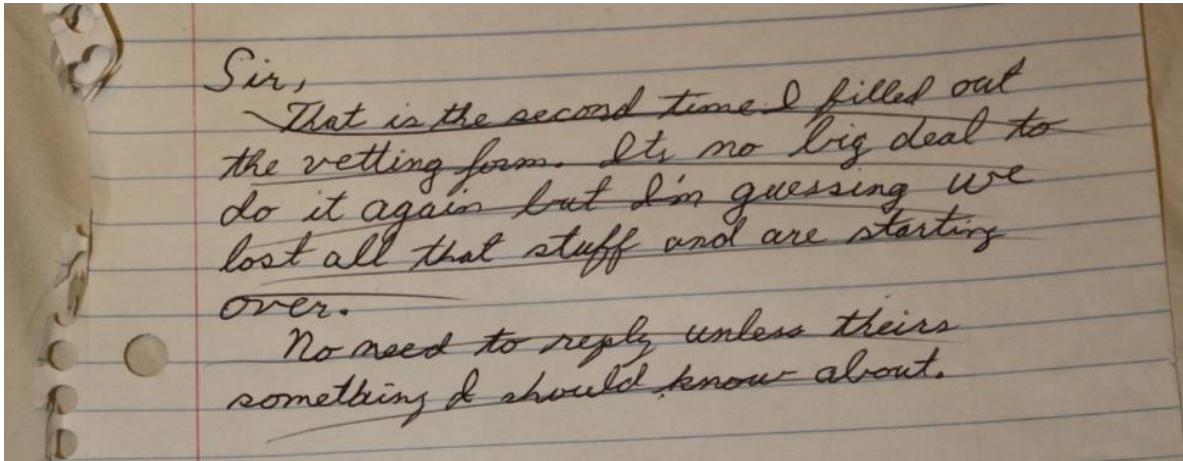 Sir,
That is the second time I filled out
the vetting form. Its no big deal to
do it again but I'm guessing we
lost all that stuff and are starting
over.
No need to reply unless theirs
something I should know about.